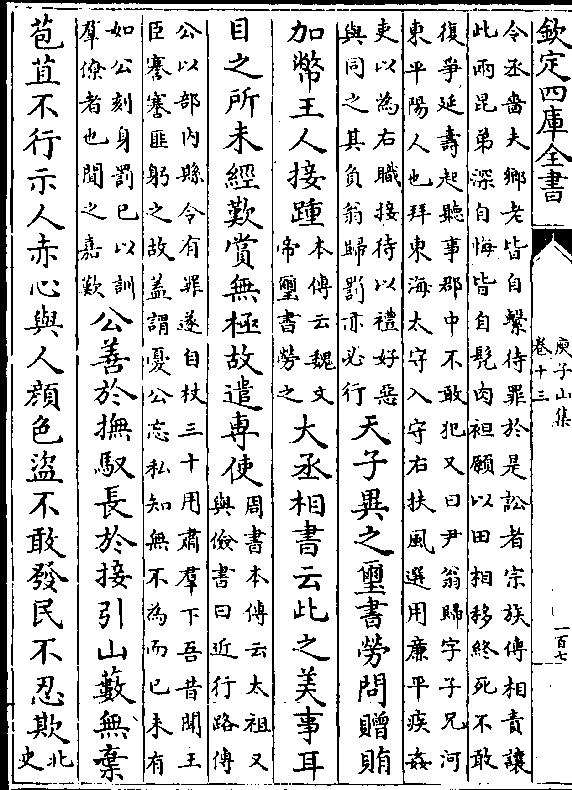 欽定四庫全書
庾子山集
卷十三
一百七
令丞嗇夫鄉老皆自繫待罪於是訟者宗族傳相責讓
此兩昆弟深自悔皆自髡肉袒願以田相移終死不敢
復爭延壽起聽事郡中不敢犯又曰尹翁歸字子兄河
東平陽人也拜東海太守入守右扶風選用廉平疾姦
吏以為右職接待以禮好惡
與同之其負翁歸罰亦必行
天子異之璽書勞問贈賄
加幣王人接踵
本傳云魏文
帝璽書勞之
大丞相書云此之美事耳
目之所未經歎賞無極故遣專使
周書本傳云太祖又
與儉書曰近行路傳
公以部內縣令有罪遂自杖三十用肅羣下吾昔聞王
臣謇謇匪躬之故蓋謂憂公忘私知無不為而已未有
如公刻身罰已以訓
羣僚者也聞之嘉歎
公善於撫馭長於接引山藪無棄
苞苴不行示人赤心與人顏色盜不敢發民不忍欺
北
史